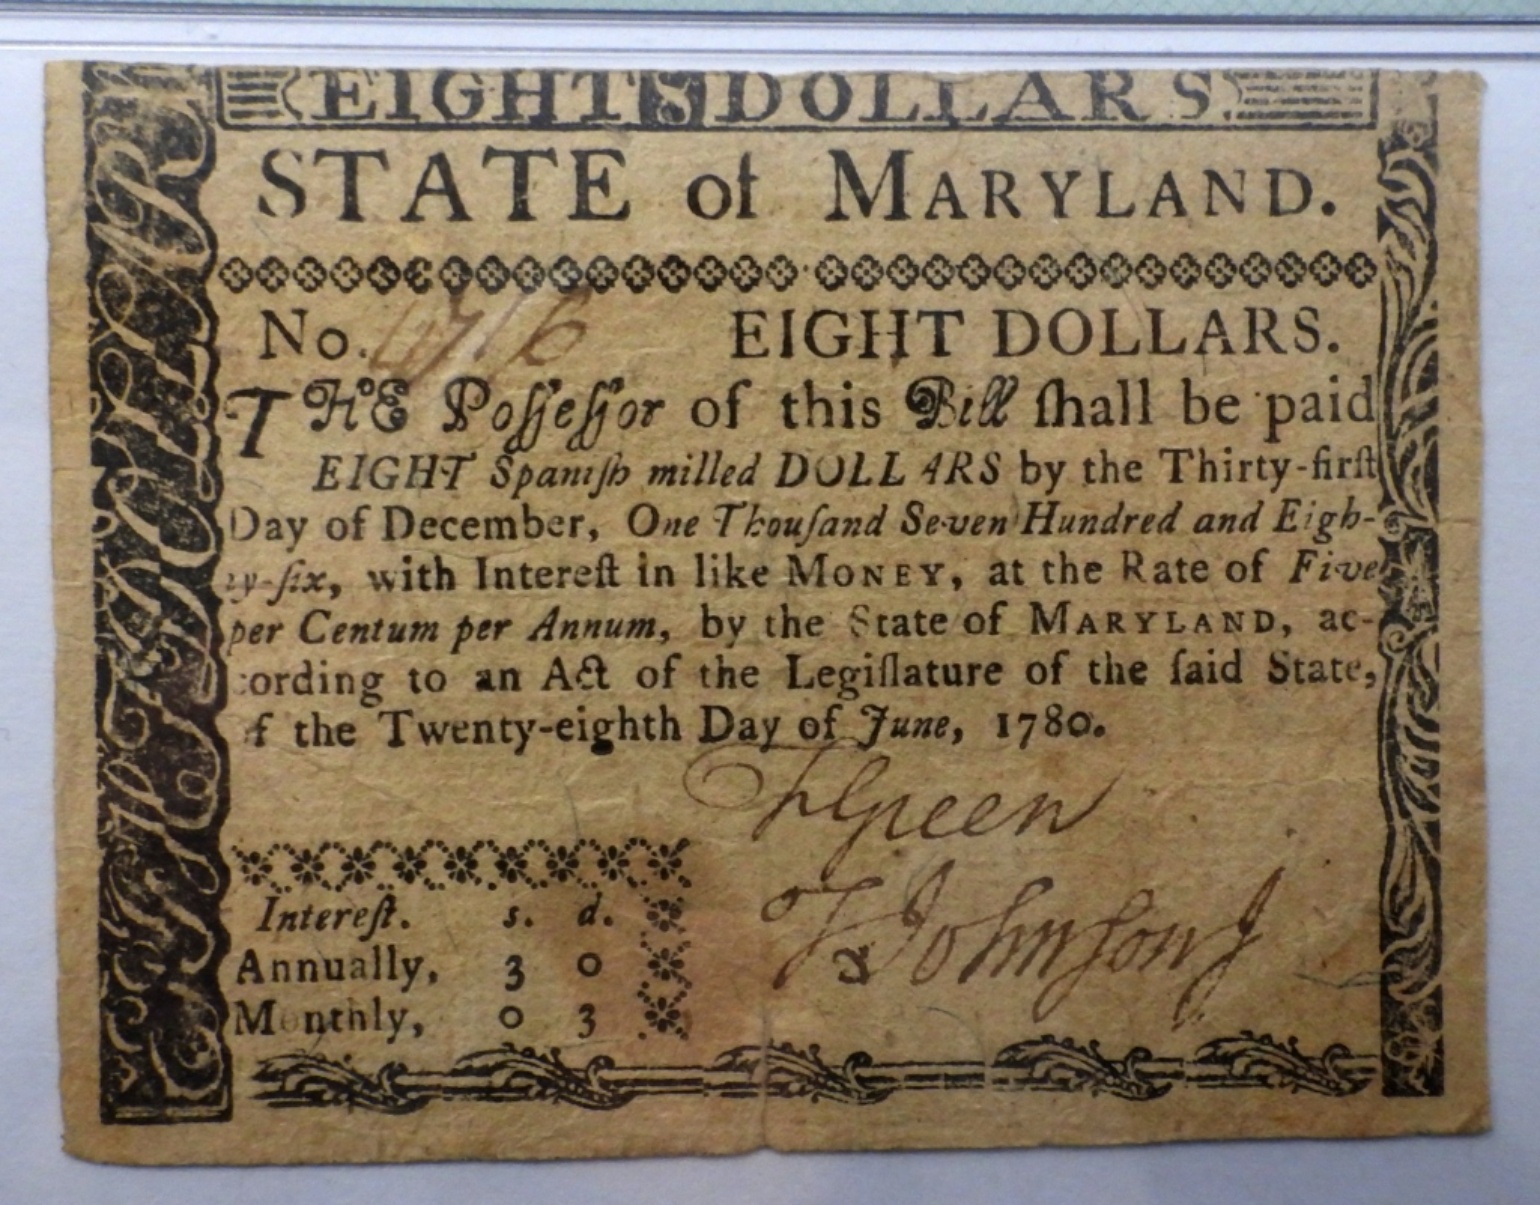 EIGHT DOLLARS
STATE of MARYLAND.
No. 6716 EIGHT DOLLARS.
THE Poſſeſſor of this Bill ſhall be paid
EIGHT Spaniſh milled DOLLARS by the Thirty-firſt
Day of December, One Thouſand Seven Hundred and Eigh-
ty-ſix, with Intereſt in like MONEY, at the Rate of Five
per Centum per Annum, by the State of MARYLAND, ac-
cording to an Act of the Legiſlature of the ſaid State,
of the Twenty-eighth Day of June, 1780.
F Green
T Johnſon J
&
Intereſt. s. d.
Annually, 3 0
Monthly, 0 3